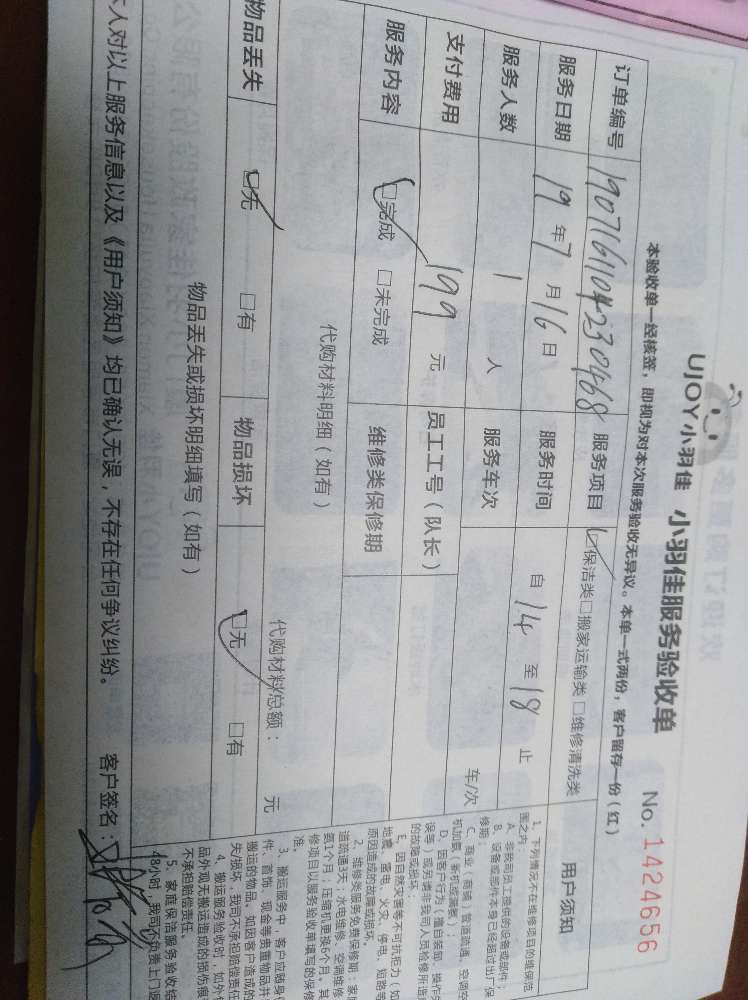 UJOY小羽佳 小羽佳服务验收单 No. 1424656
本验收单一经核签，即视为对本次服务验收无异议。本单一式两份，客户留存一份（红）
订单编号 服务项目 ☑保洁类□搬家运输类□维修清洗类
服务日期 19年7月16日 服务时间 自14至18止
服务人数 1 人 服务车次 车/次
支付费用 199 元 员工工号（队长）
服务内容 ☑完成 □未完成 维修类保修期
代购材料明细（如有） 代购材料总额： 元
物品丢失 ☑无 □有 物品损坏 ☑无 □有
物品丢失或损坏明细填写（如有）
本人对以上服务信息以及《用户须知》均已确认无误，不存在任何争议纠纷。 客户签名：
用户须知
1、下列情况不在维修项目的维保范
围之内：
A、非我司员工提供的设备或部件；
B、设备或部件本身已经超过出厂保
修期；
C、商业（商铺）管道疏通、空调空
机加氨（新机或漏氨）；
D、因客户行为（擅自装卸、操作
误等）或另请非我司人员检修所造
的故障或损坏；
E、因自然灾害等不可抗拒力（如
地震、雷电、火灾、停电、短路等
原因造成的故障或损坏。
2、维修类服务免费保修期：家
道疏通3天；水电维修、空调维修
氨1个月；压缩机更换6个月，其
修项目以服务验收单填写的保修
准。
3、搬运服务中，客户应随身
件、首饰、现金等贵重物品并
搬运的物品。如因客户造成的
失/损坏，我司不承担赔偿责任
4、搬运服务验收时，如外
品外观无搬运造成的损伤痕
不承担赔偿责任。
5、家庭保洁服务验收
48小时，我司不负责上门返